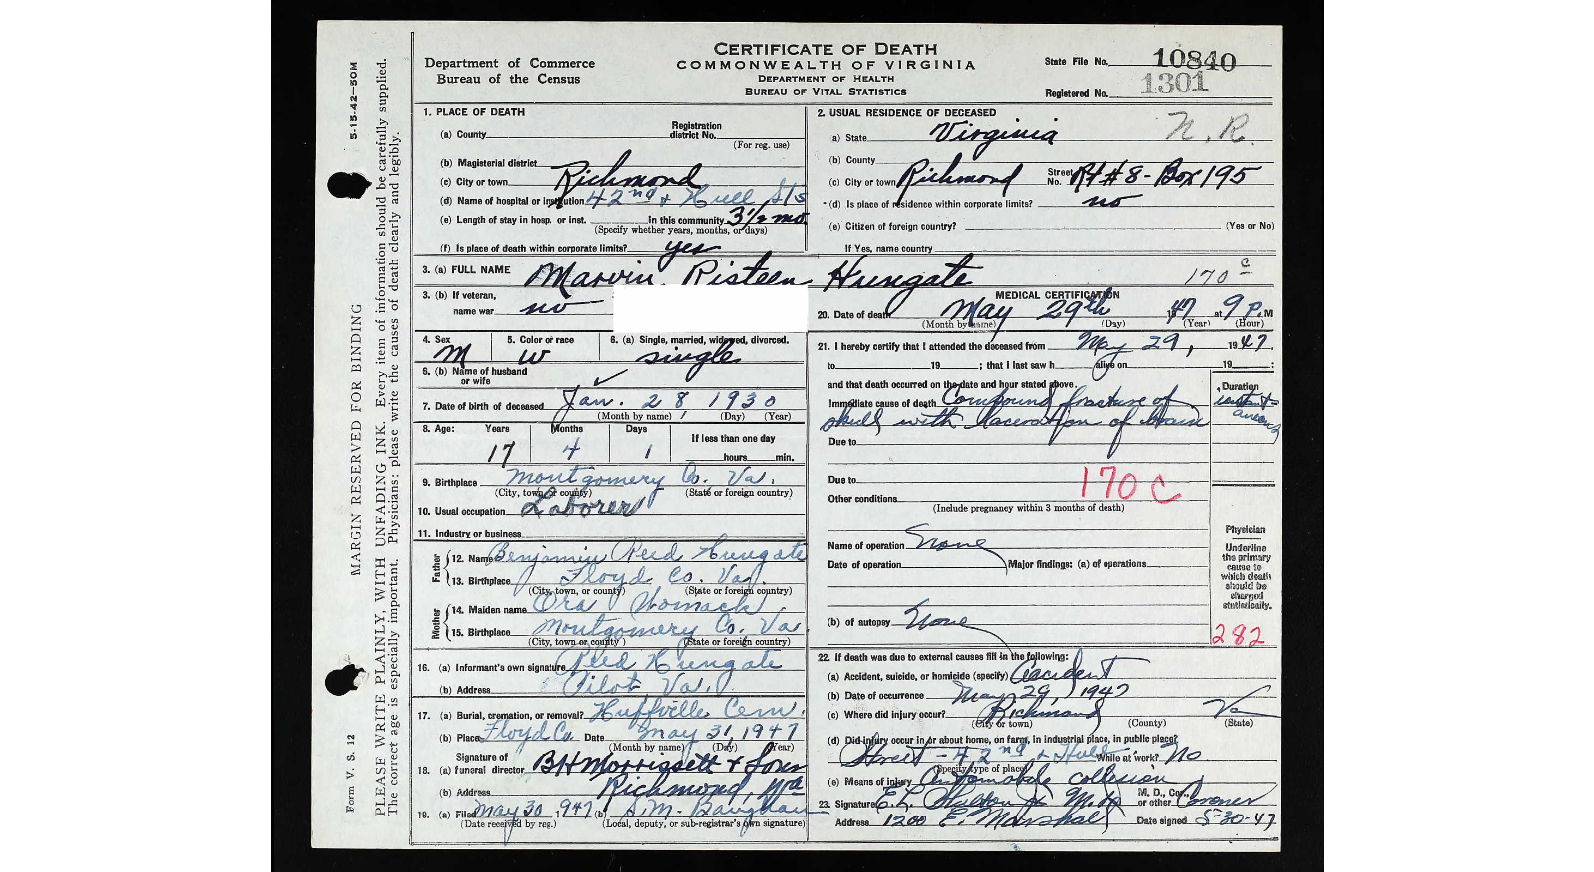 CERTIFICATE OF DEATH
COMMONWEALTH OF VIRGINIA
DEPARTMENT OF HEALTH
BUREAU OF VITAL STATISTICS
Department of Commerce
Bureau of the Census
State File No. 10840
Registered No. 1301
5-15-42—50M
MARGIN RESERVED FOR BINDING
PLEASE WRITE PLAINLY, WITH UNFADING INK. Every item of information should be carefully supplied.
The correct age is especially important. Physicians: please write the causes of death clearly and legibly.
Form V. S. 12
1. PLACE OF DEATH
(a) County
Registration district No.
(For reg. use)
(b) Magisterial district
(c) City or town Richmond
(d) Name of hospital or institution 42nd + Hull Sts
(e) Length of stay in hosp. or inst. In this community 3½ mo.
(Specify whether years, months, or days)
(f) Is place of death within corporate limits? yes
2. USUAL RESIDENCE OF DECEASED
a) State Virginia N. R.
(b) County
(c) City or town Richmond Street No. Rt #8 - Box 195
(d) Is place of residence within corporate limits? no
(e) Citizen of foreign country? (Yes or No)
If Yes, name country
3. (a) FULL NAME Marvin Risteen Hungate 170 c
3. (b) If veteran, name war no
4. Sex M
5. Color or race W
6. (a) Single, married, widowed, divorced. single
6. (b) Name of husband or wife
7. Date of birth of deceased Jan. 28 1930
(Month by name) (Day) (Year)
8. Age: Years 17 Months 4 Days 1
If less than one day
hours min.
9. Birthplace Montgomery Co. Va.
(City, town or county) (State or foreign country)
10. Usual occupation Laborer
11. Industry or business
Father
12. Name Benjamin Reed Hungate
13. Birthplace Floyd Co. Va.
(City, town, or county) (State or foreign country)
Mother
14. Maiden name Ora Womack
15. Birthplace Montgomery Co. Va
(City, town or county) (State or foreign country)
16. (a) Informant's own signature Reed Hungate
(b) Address Pilot, Va.
17. (a) Burial, cremation, or removal? Huffville Cem.
(b) Place Floyd Co. Date May 31, 1947
(Month by name) (Day) (Year)
18. (a) Signature of funeral director B H Morrissett + Sons
(b) Address Richmond, Va
19. (a) Filed May 30 1947 (b)
(Date received by reg.) (Local, deputy, or sub-registrar's own signature)
MEDICAL CERTIFICATION
20. Date of death May 29th 1947 at 9 P.M
(Month by name) (Day) (Year) (Hour)
21. I hereby certify that I attended the deceased from May 29, 1947
to 19 ; that I last saw h alive on 19 ;
and that death occurred on the date and hour stated above.
Duration
Immediate cause of death Compound fracture of
skull with laceration of brain
Due to
Due to
170 C
Other conditions
(Include pregnancy within 3 months of death)
Name of operation None
Date of operation Major findings: (a) of operations
(b) of autopsy None
Physician
Underline the primary cause to which death should be charged statistically.
282
22. If death was due to external causes fill in the following:
(a) Accident, suicide, or homicide (specify) Accident
(b) Date of occurrence May 29, 1947
(c) Where did injury occur? Richmond Va
(City or town) (County) (State)
(d) Did injury occur in or about home, on farm, in industrial place, in public place?
Street - 42nd + Hull While at work? No
(Specify type of place)
(e) Means of injury Automobile collision
23. Signature M. D., Cor., or other Coroner
Address 1200 E. Marshall Date signed 5-30-47